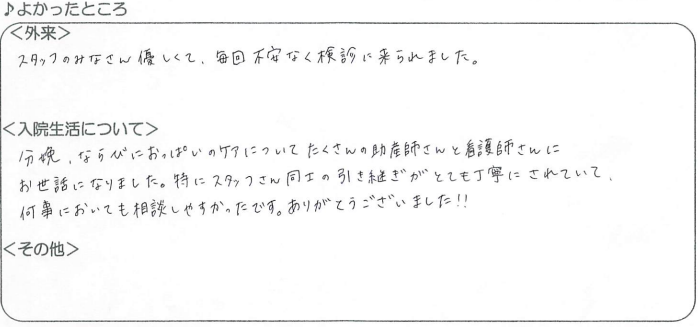 ♪よかったところ
＜外来＞
スタッフのみなさん優しくて、毎回不安なく検診に来られました。
＜入院生活について＞
分娩、ならびにおっぱいのケアについてたくさんの助産師さんと看護師さんに
お世話になりました。特にスタッフさん同士の引き継ぎがとても丁寧にされていて、
何事においても相談しやすかったです。ありがとうございました!!
＜その他＞